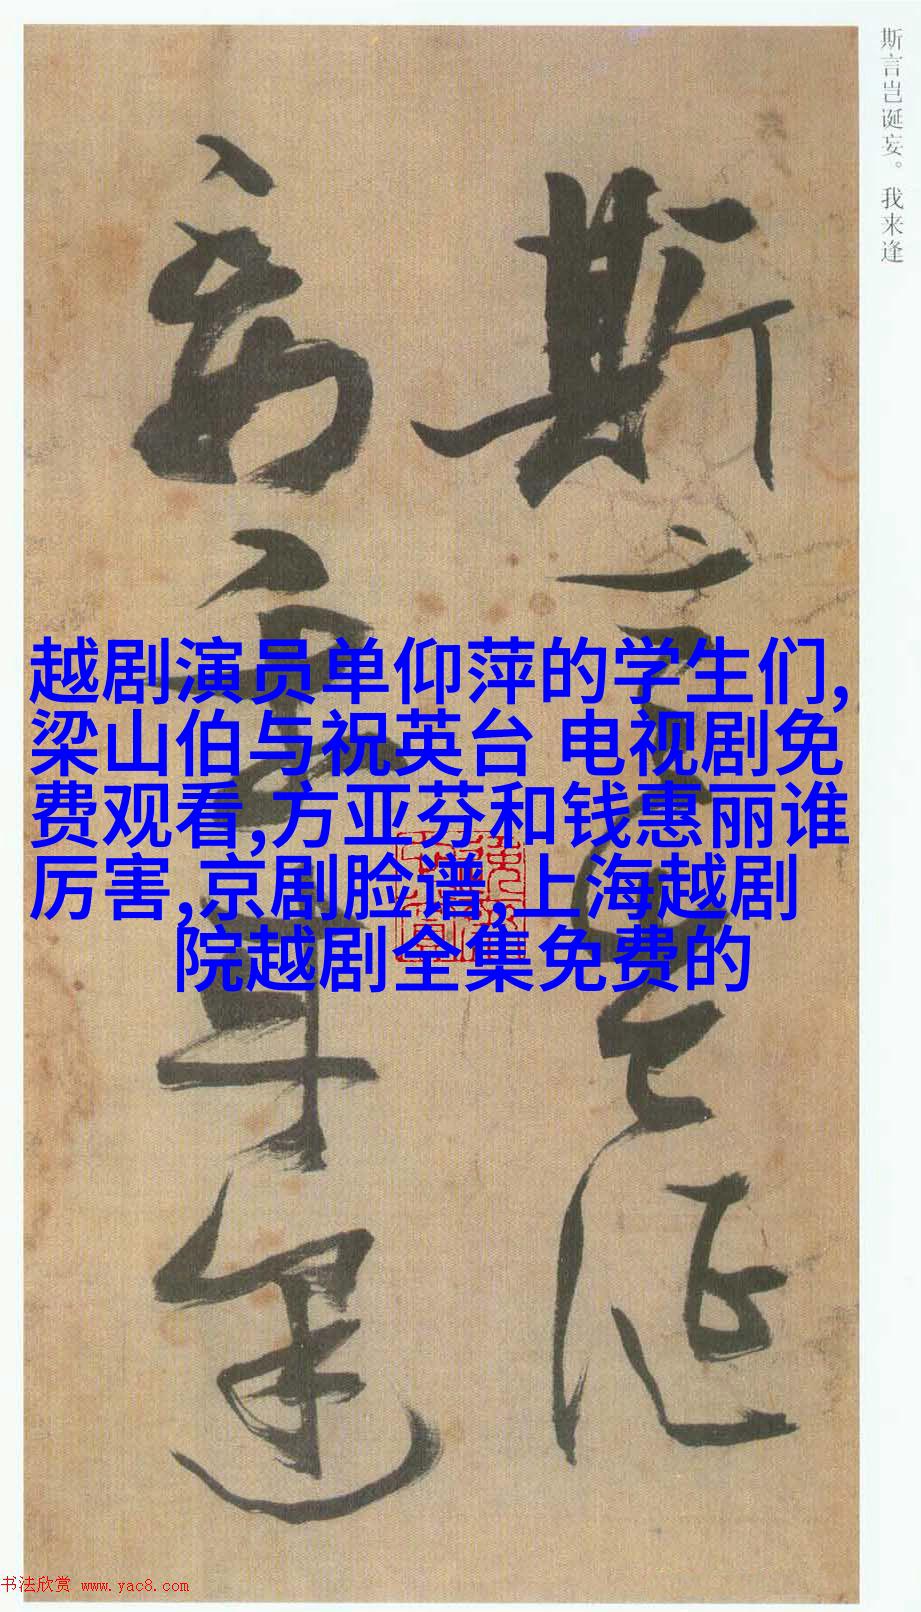 斯言岂诞妄。我来逢
斯言岂诞
妄我来逢
越剧演员单仰萍的学生们,
梁山伯与祝英台 电视剧免
费观看,方亚芬和钱惠丽谁
厉害,京剧脸谱,上海越剧
院越剧全集免费的
书法欣赏 www.yac8.com